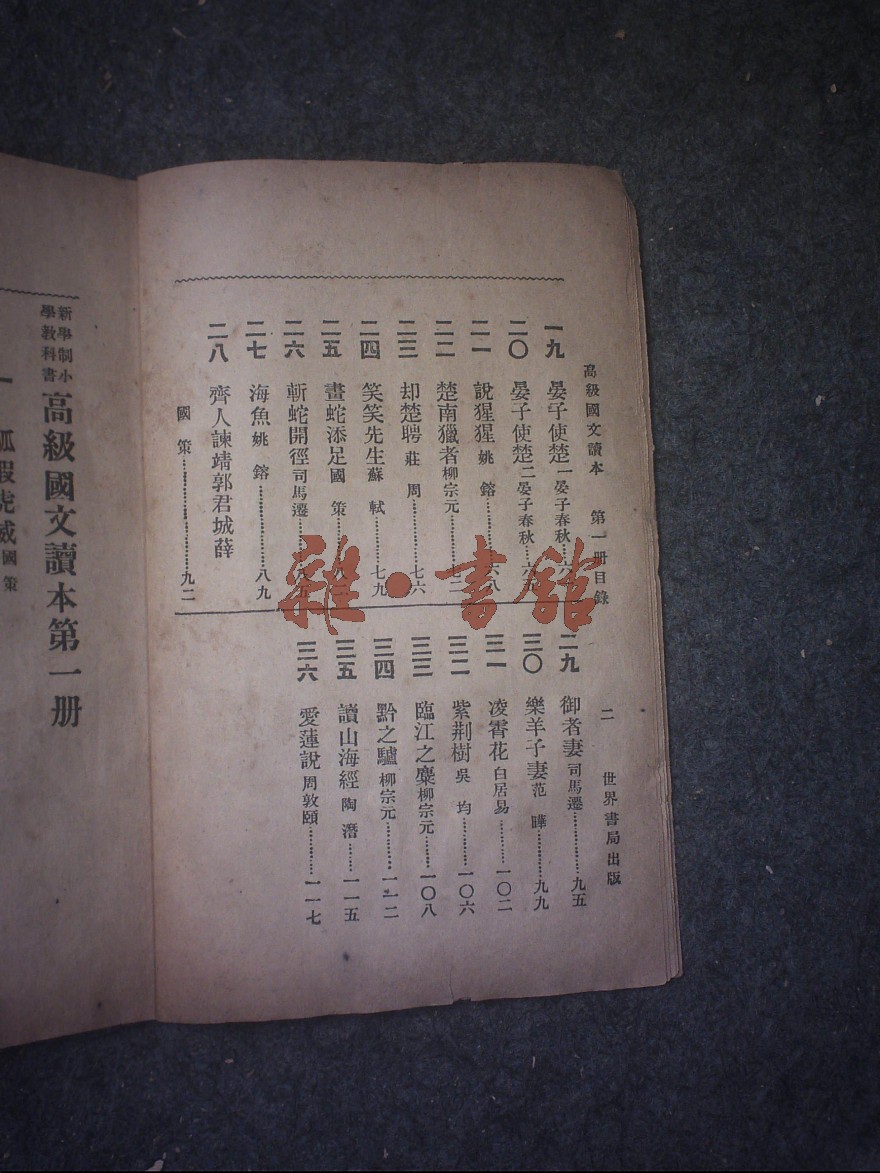 高級國文讀本　第一册目錄　二　世界書局出版
一九　晏子使楚一　晏子春秋……六
二〇　晏子使楚二　晏子春秋……六
二一　說猩猩　姚鎔……六八
二二　楚南獵者　柳宗元……七二
二三　却楚聘　莊周……七六
二四　笑笑先生　蘇軾……七九
二五　畫蛇添足　國策……八
二六　斬蛇開徑　司馬遷……八五
二七　海魚　姚鎔……八九
二八　齊人諫靖郭君城薛
國策……九二
二九　御者妻　司馬遷……九五
三〇　樂羊子妻　范曄……九九
三一　凌霄花　白居易……一〇二
三二　紫荆樹　吳均……一〇六
三三　臨江之麋　柳宗元……一〇八
三四　黔之驢　柳宗元……一一二
三五　讀山海經　陶潛……一一五
三六　愛蓮說　周敦頤……一一七
新學制小學教科書　高級國文讀本第一册
一　狐假虎威　國策
雜·書館